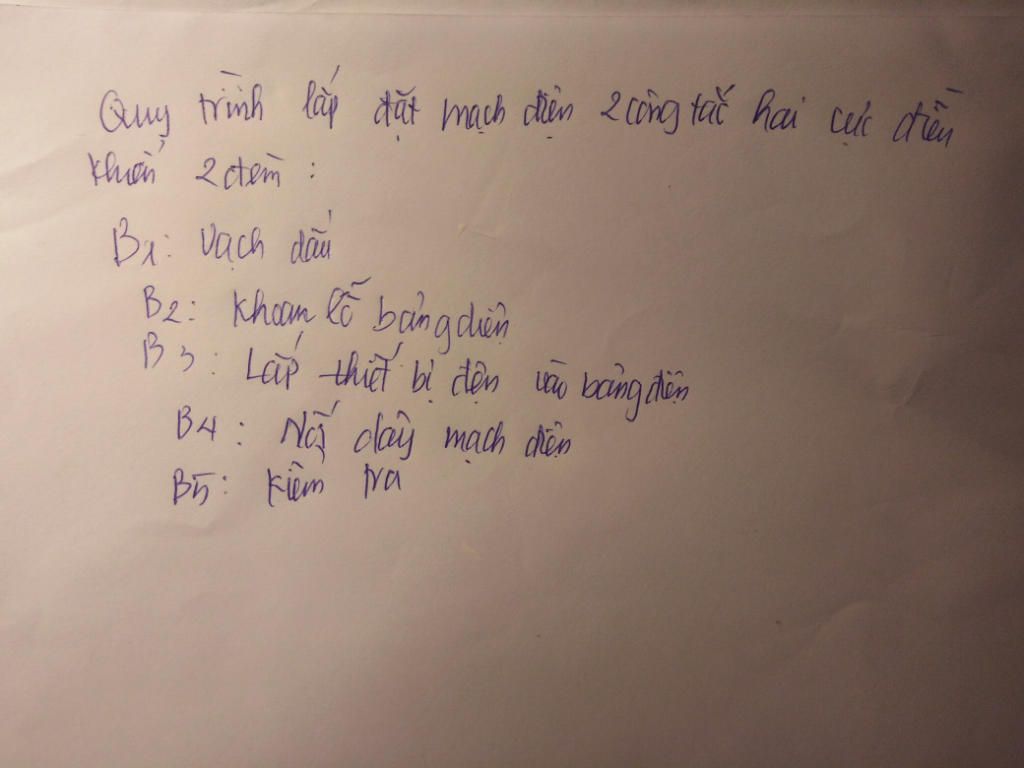 Quy trình lắp đặt mạch điện 2 công tắc hai cực điều
khiển 2 đèn :
B1: Vạch dấu
B2: Khoan lỗ bảng điện
B3: Lắp thiết bị điện vào bảng điện
B4: Nối dây mạch điện
B5: Kiểm tra